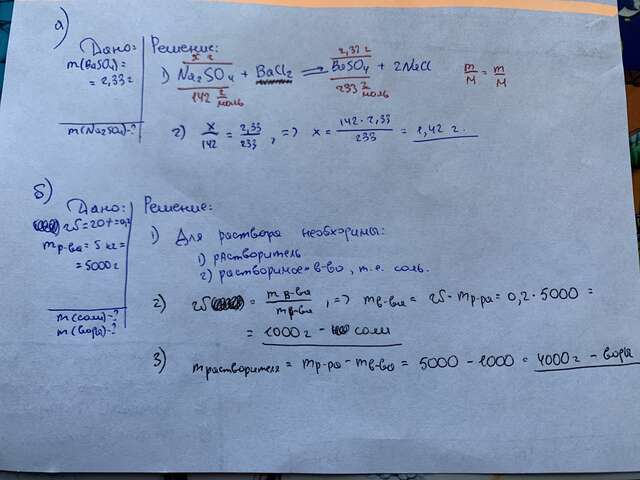 а)
Дано:
m(BaSO₄)=
= 2,33 г
m(Na₂SO₄)-?
Решение:
x г 2,33 г
1) Na₂SO₄ + BaCl₂ → BaSO₄ + 2NaCl m/M = m/M
142 г/моль 233 г/моль
2) x/142 = 2,33/233, => x = 142·2,33/233 = 1,42 г.
б)
Дано:
m р-ра = 5 кг =
= 5000 г
m(соли)-?
m(воды)-?
Решение:
1) Для раствора необходимы:
1) растворитель
2) растворимое в-во, т.е. соль.
2) = m в-ва/m в-ва, => m в-ва = · m р-ра = 0,2 · 5000 =
= 1000 г - соли
3) m растворителя = m р-ра - m в-ва = 5000 - 1000 = 4000 г - воды